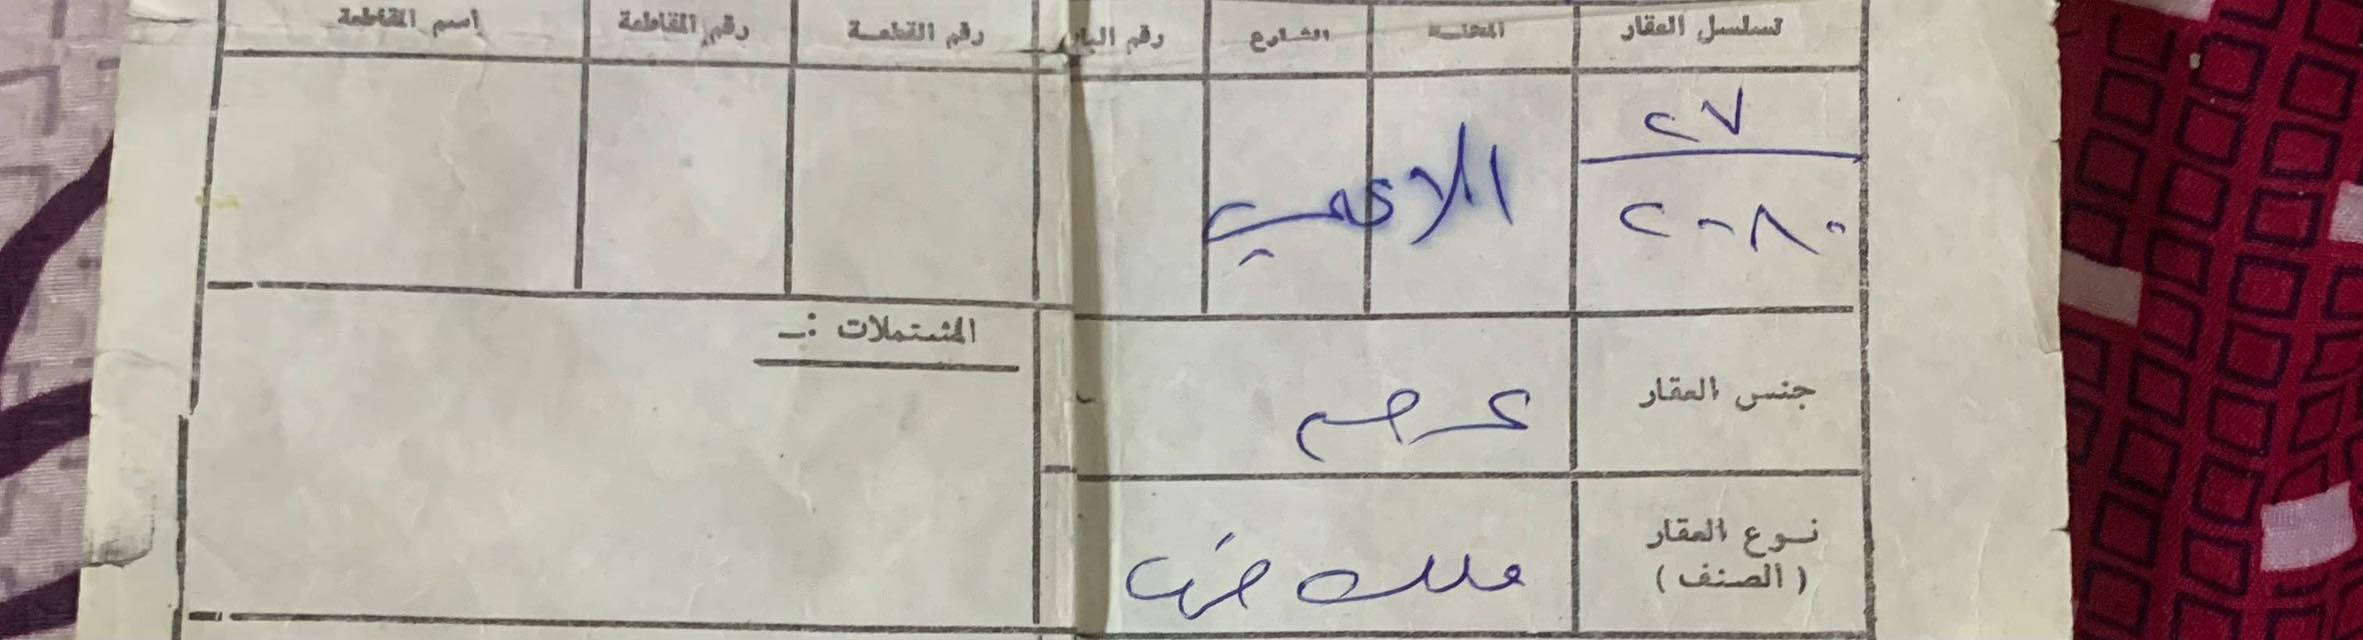 تسلسل العقار المحلة الشارع رقم الباب رقم القطعة رقم المقاطعة اسم المقاطعة
٢٧
٢٠٨٠
المشتملات :ـ
جنس العقار عرصه
نوع العقار ملك صرف
( الصنف )